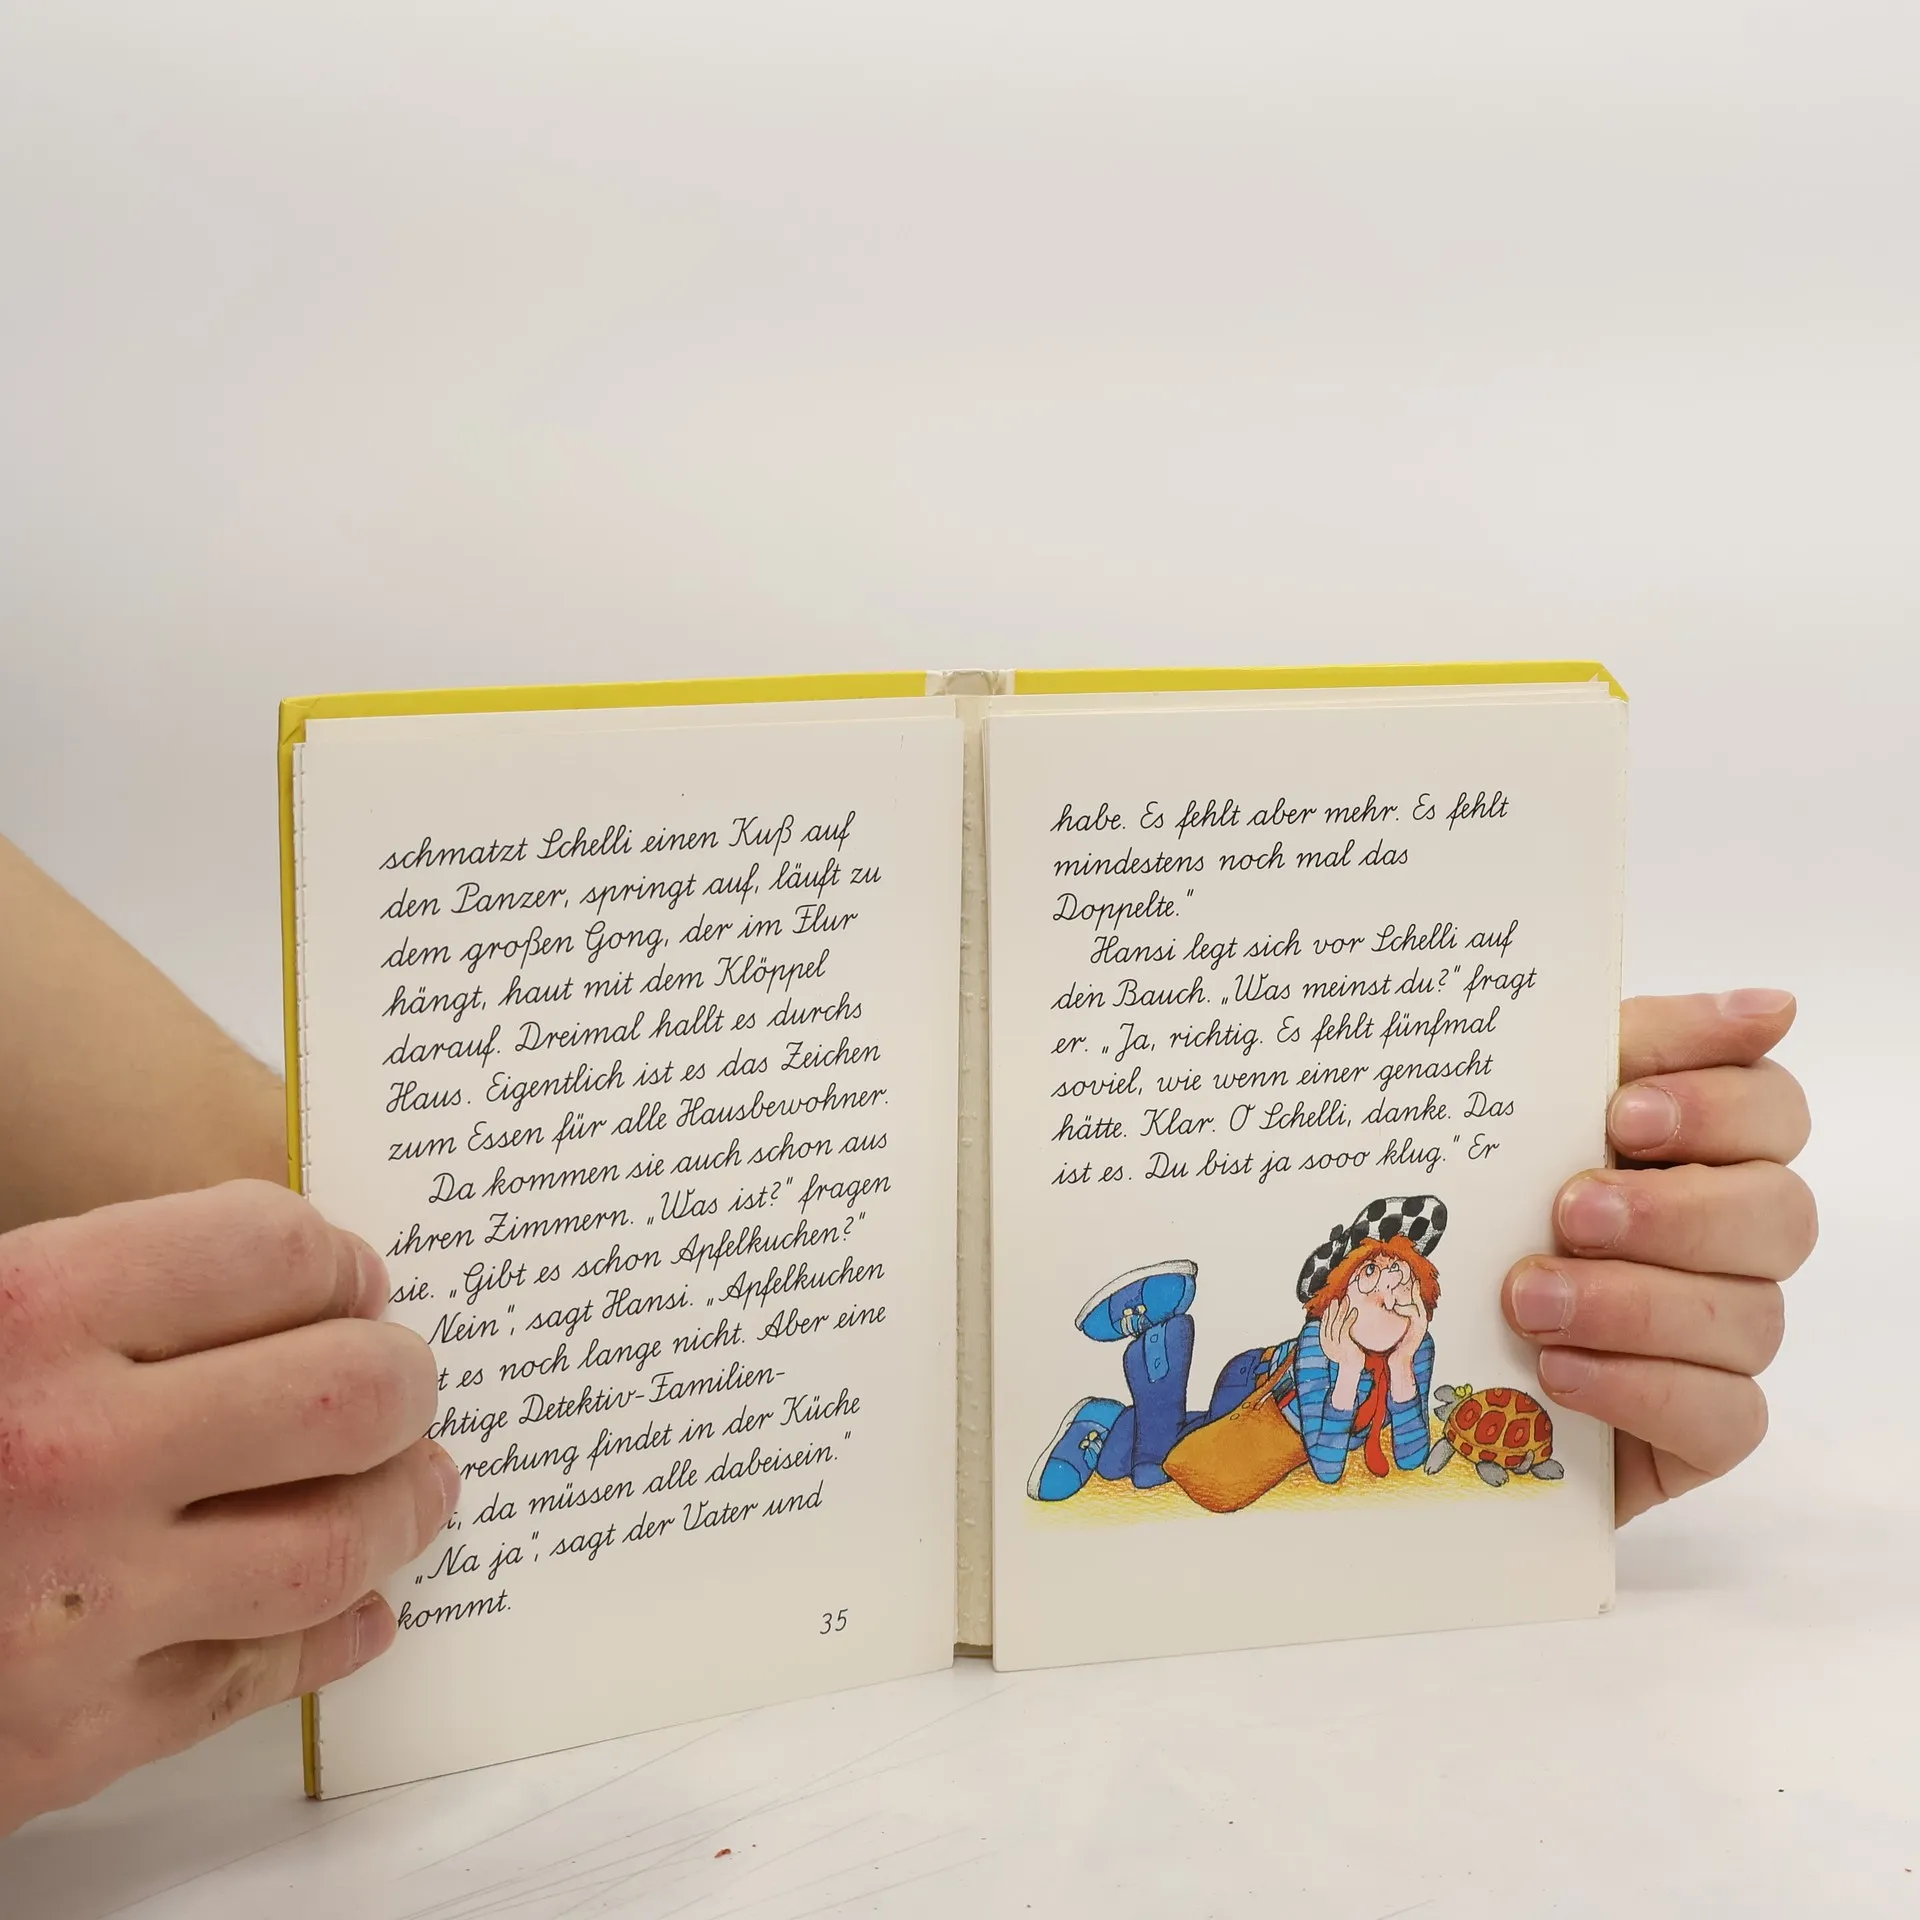 schmatzt Schelli einen Kuß auf
den Panzer, springt auf, läuft zu
dem großen Gong, der im Flur
hängt, haut mit dem Klöppel
darauf. Dreimal hallt es durchs
Haus. Eigentlich ist es das Zeichen
zum Essen für alle Hausbewohner.
Da kommen sie auch schon aus
ihren Zimmern. „Was ist?“ fragen
sie. „Gibt es schon Apfelkuchen?“
Nein“, sagt Hansi. „Apfelkuchen
es noch lange nicht. Aber eine
Detektiv-Familien-
findet in der Küche
da müssen alle dabeisein.“
„Na ja“, sagt der Vater und
kommt.
35
habe. Es fehlt aber mehr. Es fehlt
mindestens noch mal das
Doppelte.“
Hansi legt sich vor Schelli auf
den Bauch. „Was meinst du?“ fragt
er. „Ja, richtig. Es fehlt fünfmal
soviel, wie wenn einer genascht
hätte. Klar. O Schelli, danke. Das
ist es. Du bist ja sooo klug.“ Er